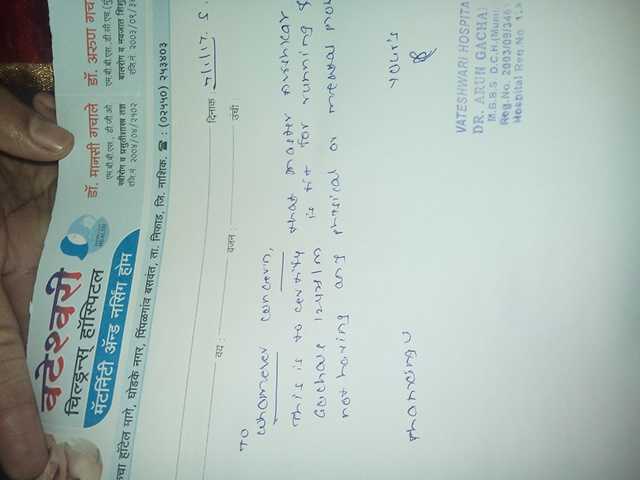 वटेश्वरी
चिल्ड्रन्स् हॉस्पिटल
मॅटर्निटी ॲन्ड नर्सिंग होम
डॉ. मानसी गचाले
एम.बी.बी.एस., डी.जी.ओ.
स्त्रीरोग व प्रसुतीशास्त्र तज्ञ
रजि.नं. २००४/०४/२५०२
डॉ. अरुण गच
एम.बी.बी.एस. डी.सी.एच.
बालरोग व नवजात शिशु
रजि.नं. २००३/०९/३४
हॉटेल मागे, घोडके नगर, पिंपळगांव बसवंत, ता. निफाड, जि. नाशिक. ☎ : (०२५५०) २५३४०३
दिनांक :
वय : वजन : उंची :
TO
whomever concern,
This is to certify that master
Gachale is fit for running
not having any physical or
Thanking u
your's
VATESHWARI HOSPITA
DR. ARUN GACHA
M.B.B.S. D.C.H.(Mum
Reg.No. 2003/09/346
Hospital Reg.No. 1